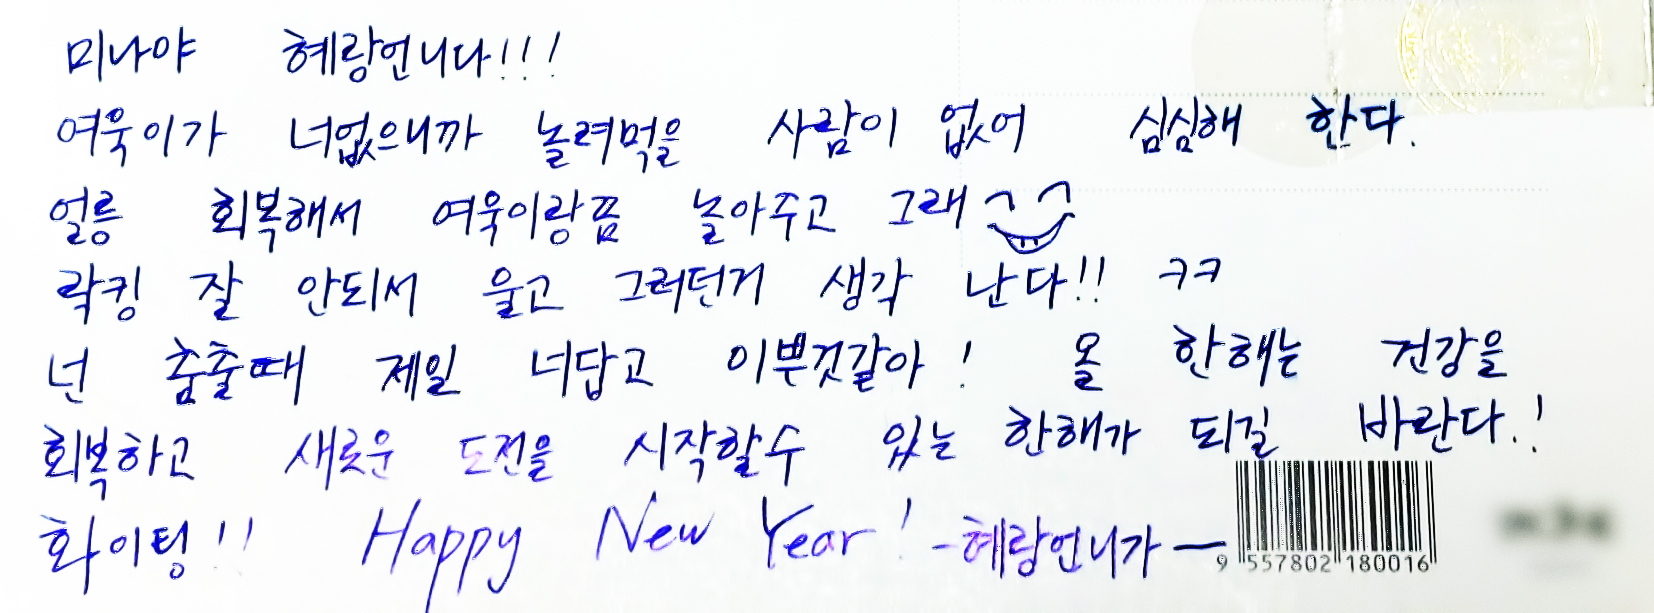 미나야 혜랑언니다!!!
여욱이가 너없으니까 놀려먹을 사람이 없어 심심해 한다.
얼릉 회복해서 여욱이랑쫌 놀아주고 그래
락킹 잘 안되서 울고 그러던거 생각 난다!! ㅋㅋ
넌 춤출때 제일 너답고 이쁜것같아! 올 한해는 건강을
회복하고 새로운 도전을 시작할수 있는 한해가 되길 바란다.!
화이팅!! Happy New Year! -혜랑언니가-
9 557802 180016